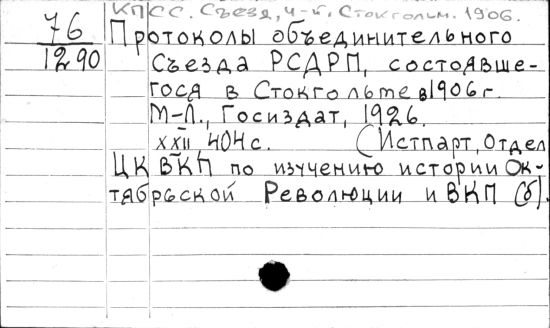 КПСС. Съезд, 4-й, Стокгольм. 1906.
76
1290
Протоколы объединительного
съезда РСДРП, состоявше-
гося в Стокгольме в 1906 г.
М-Л., Госиздат, 1926.
XXII, 404 с. (Истпарт, Отдел
ЦК ВКП по изучению истории Ок-
тябрьской Революции и ВКП (б).